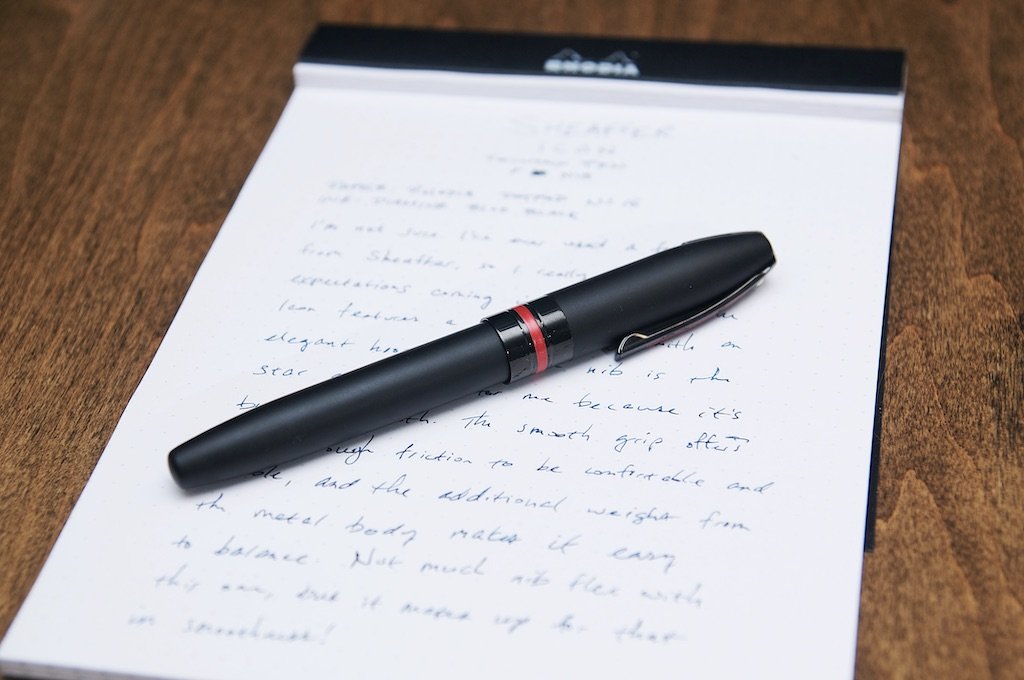 RHODIA
SHEAFFER
ICON
F NIB
PAPER: RHODIA DOTPAD No 16
INK: BLUE BLACK
I'm not sure I've ever used a
from Sheaffer, so I really
expectations coming
Icon features a
elegant with an
star nib is the
for me because it's
The smooth grip offers
friction to be comfortable and
and the additional weight from
the metal body makes it easy
to balance. Not much nib flex with
this one, but it makes up for that
in smoothness!